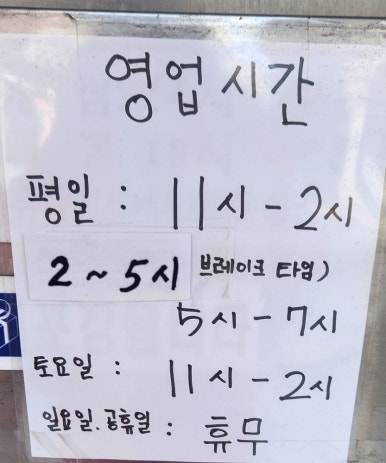 영업시간
평일 : 11시 - 2시
2 ~ 5시 브레이크 타임)
5시 - 7시
토요일 : 11시 - 2시
일요일.공휴일 : 휴무